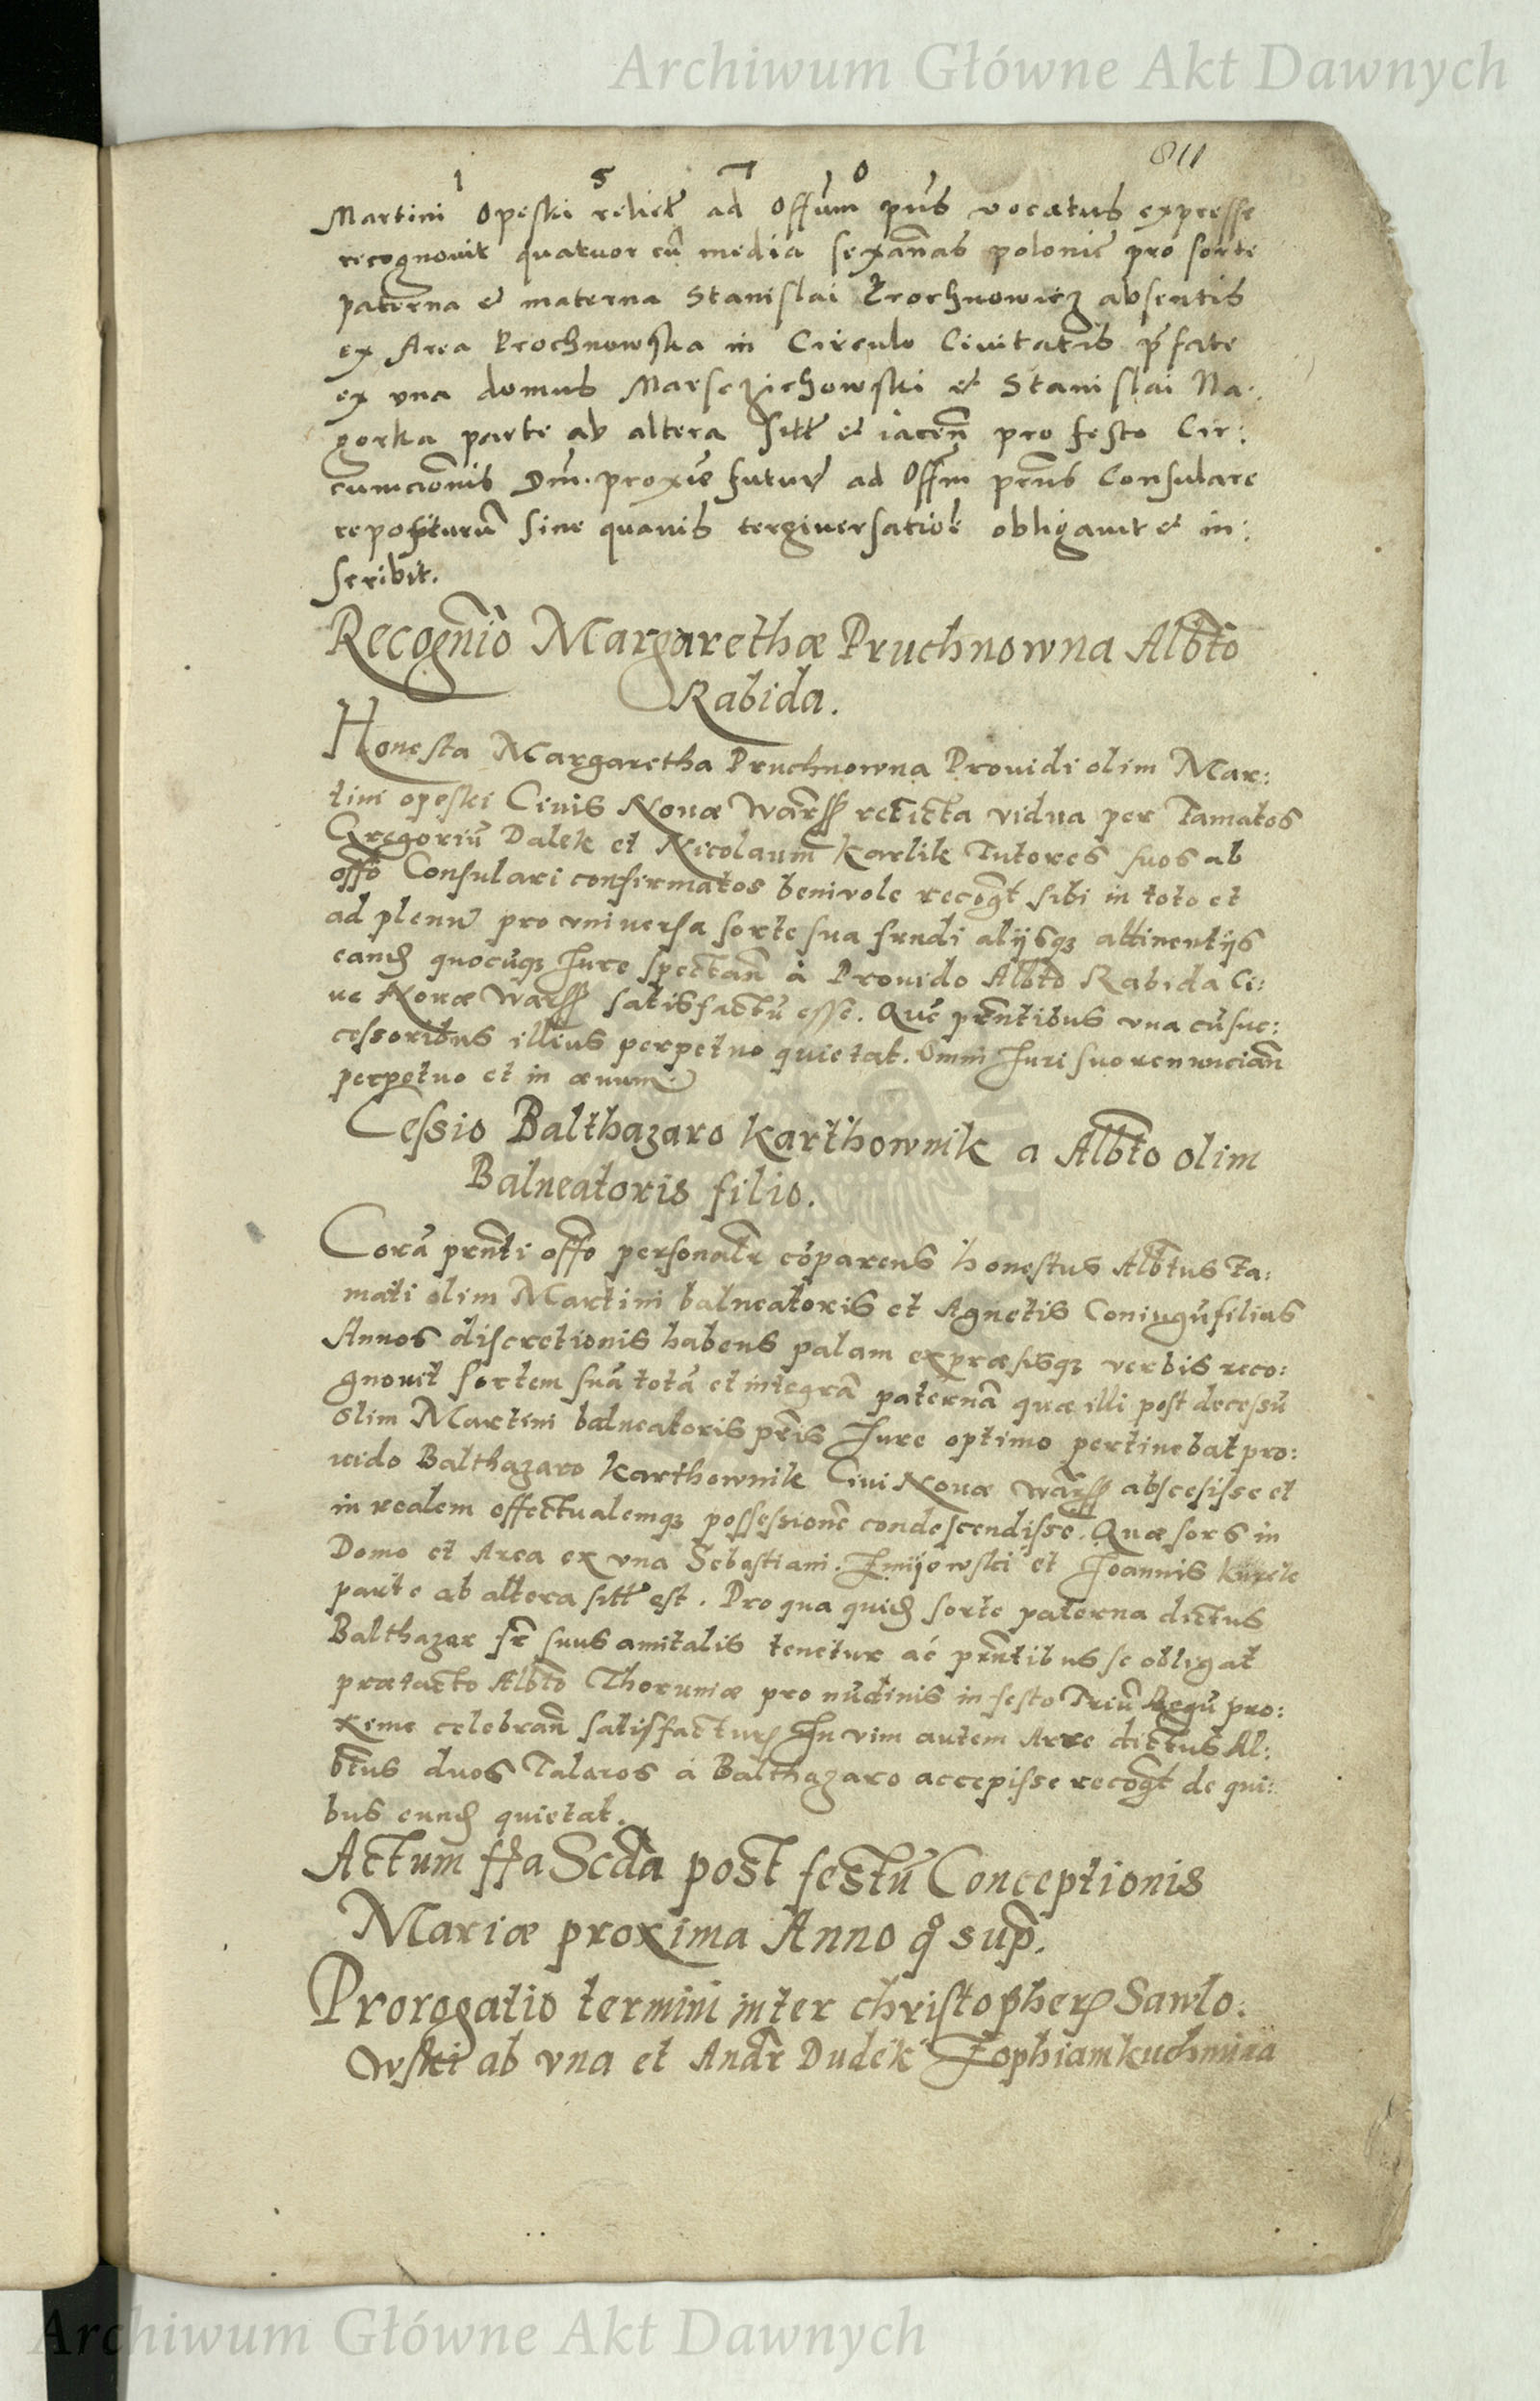 Archiwum Główne Akt Dawnych
811
1 5 7 0
Martini Opeski relictẽ ad Offum pñs vocatus expresse
recognouit quatuor cũ media sexañas polonic̃ pro sorte
paterna et materna Stanislai Prochnowicz absentis
ex Area Prochnowska in Circulo Ciuitatis p̃fate
ex vna domus Marsczichowski et Stanislai Na.
gorka parte ab altera sitẽ et iaceñ pro festo Cir:
cumcionis Dñi. proxĩe futur ad Offm prñs Consulare
repositurũ sine quauis tergiuersatiõe obligauit et in:
scribit.
Recognio Margarethæ Pruchnowna Albto
Rabida.
Honesta Margaretha Pruchnowna Prouidi olim Mar:
tini opeski Ciuis Nouæ Warss relicta vidua per Famatos
Gregoriũ Dalek et Nicolaum Karlik Tutores suos ab
offo Consulari confirmatos beniuole recogt sibi in toto et
ad plenũ pro vniuersa sorte sua fundi alijsq3 attinentijs
eand quocũq3 Jure spectañ à Prouido Albto Rabida Ci:
ue Nouæ Warss satisfactũ esse. Quẽ prñtibus vna cũ suc:
cessoribus illius perpetuo quietat. Omni Juri suo renuncian
perpetuo et in æuum.
Cessio Balthazaro Karthownik a Albto olim
Balneatoris filio.
Corã prñti offo personalr cõparens honestus Albtus Fa:
mati olim Martini balneatoris et Agnetis Coniugũ filius
Annos discretionis habens palam expræsisq3 verbis reco:
gnouit sortem suã totã et integrã paternã quæ illi post decessũ
olim Martini balneatoris pris Jure optimo pertinebat pro:
uido Balthazaro Karthownik Ciui Nouæ Warss abscesisse et
in realem effectualemq3 possessionẽ condescendisse. Quæ sors in
Domo et Area ex vna Sebastiani. Zmijowski et Joannis Kurek
parte ab altera sitẽ est. Pro qua quid sorte paterna dictus
Balthazar fr̃ suus amitalis tenetur ac prñtibus se obligat
præfacto Albto Thoruniæ pro nũdinis in festo Triũ Regũ pro:
xime celebrañ satisfactur In vim autem Arre dictus Al:
btus duos Taleros à Balthazaro accepisse recogt de qui:
bus eund quietat.
Actum ffa Scda post festũ Conceptionis
Mariæ proxima Anno q̊ sup.
Prorogatio termini inter christopher Sawlo.
wski ab vna et Andr Dudek Zophiam kuchmiia
Archiwum Główne Akt Dawnych